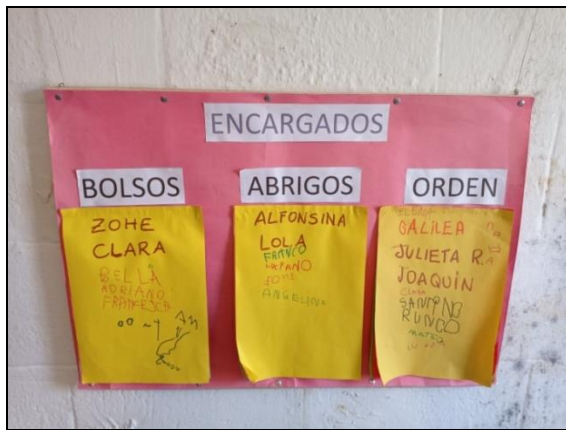 ENCARGADOS
BOLSOS
ZOHE
CLARA
BELLA
ADRIANO
FRANCESCA
ABRIGOS
ALFONSINA
LOLA
FRANCO
ANGELINA
ORDEN
GALILEA
JULIETA R.A
JOAQUÍN
CLARA
SANTINO
RUNCO